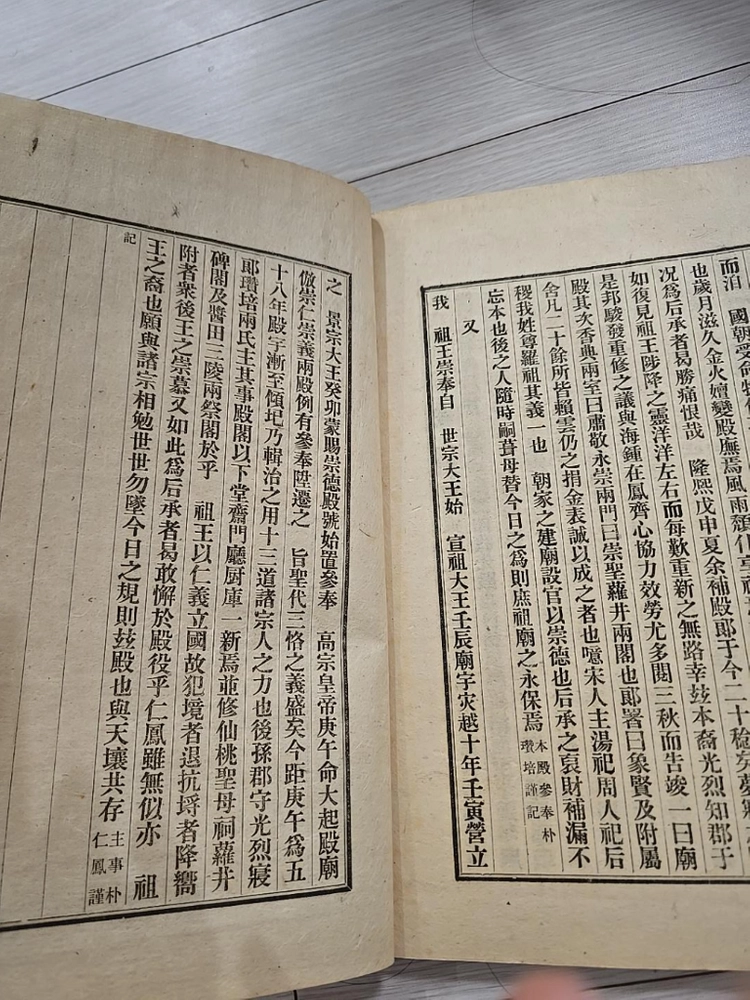 而洎　國朝受命
也歲月滋久金火嬗變殿廡焉風雨頹
况爲后承者曷勝痛恨哉　隆熙戊申夏余補殿郞于今二十稔矣夢寐
如復見祖王陟降之靈洋洋左右而每歎重新之無路幸玆本裔光烈知郡于
是邦駿發重修之議與海鍾在鳳齊心協力效勞尤多閱三秋而告竣一曰廟
殿其次香典兩室曰肅敬永崇兩門曰崇聖蘿井兩閣也郞署曰象賢及附屬
舍凡二十餘所皆賴雲仍之捐金表誠以成之者也噫宋人主湯祀周人祀后
稷我姓尊羅祖其義一也　朝家之建廟設官以崇德也后承之裒財補漏不
忘本也後之人隨時嗣葺毋替今日之爲則庶祖廟之永保焉 本殿參奉朴
瓚培謹記
又
我　祖王崇奉自　世宗大王始　宣祖大王壬辰廟宇灾越十年壬寅營立
之　景宗大王癸卯蒙賜崇德殿號始置參奉　高宗皇帝庚午命大起殿廟
倣崇仁崇義兩殿例有參奉陞遷之　旨聖代三恪之義盛矣今距庚午爲五
十八年殿宇漸至傾圮乃輯治之用十三道諸宗人之力也後孫郡守光烈寢
郞瓚培兩氏主其事殿閣以下堂齋門廳厨庫一新焉並修仙桃聖母祠蘿井
碑閣及醬田三陵兩祭閣於乎　祖王以仁義立國故犯境者退抗埓者降嚮
附者衆後王之崇慕又如此爲后承者曷敢懈於殿役乎仁鳳雖無似亦　祖
王之裔也願與諸宗相勉世世勿墜今日之規則玆殿也與天壤共存 主事朴
仁鳳謹
記